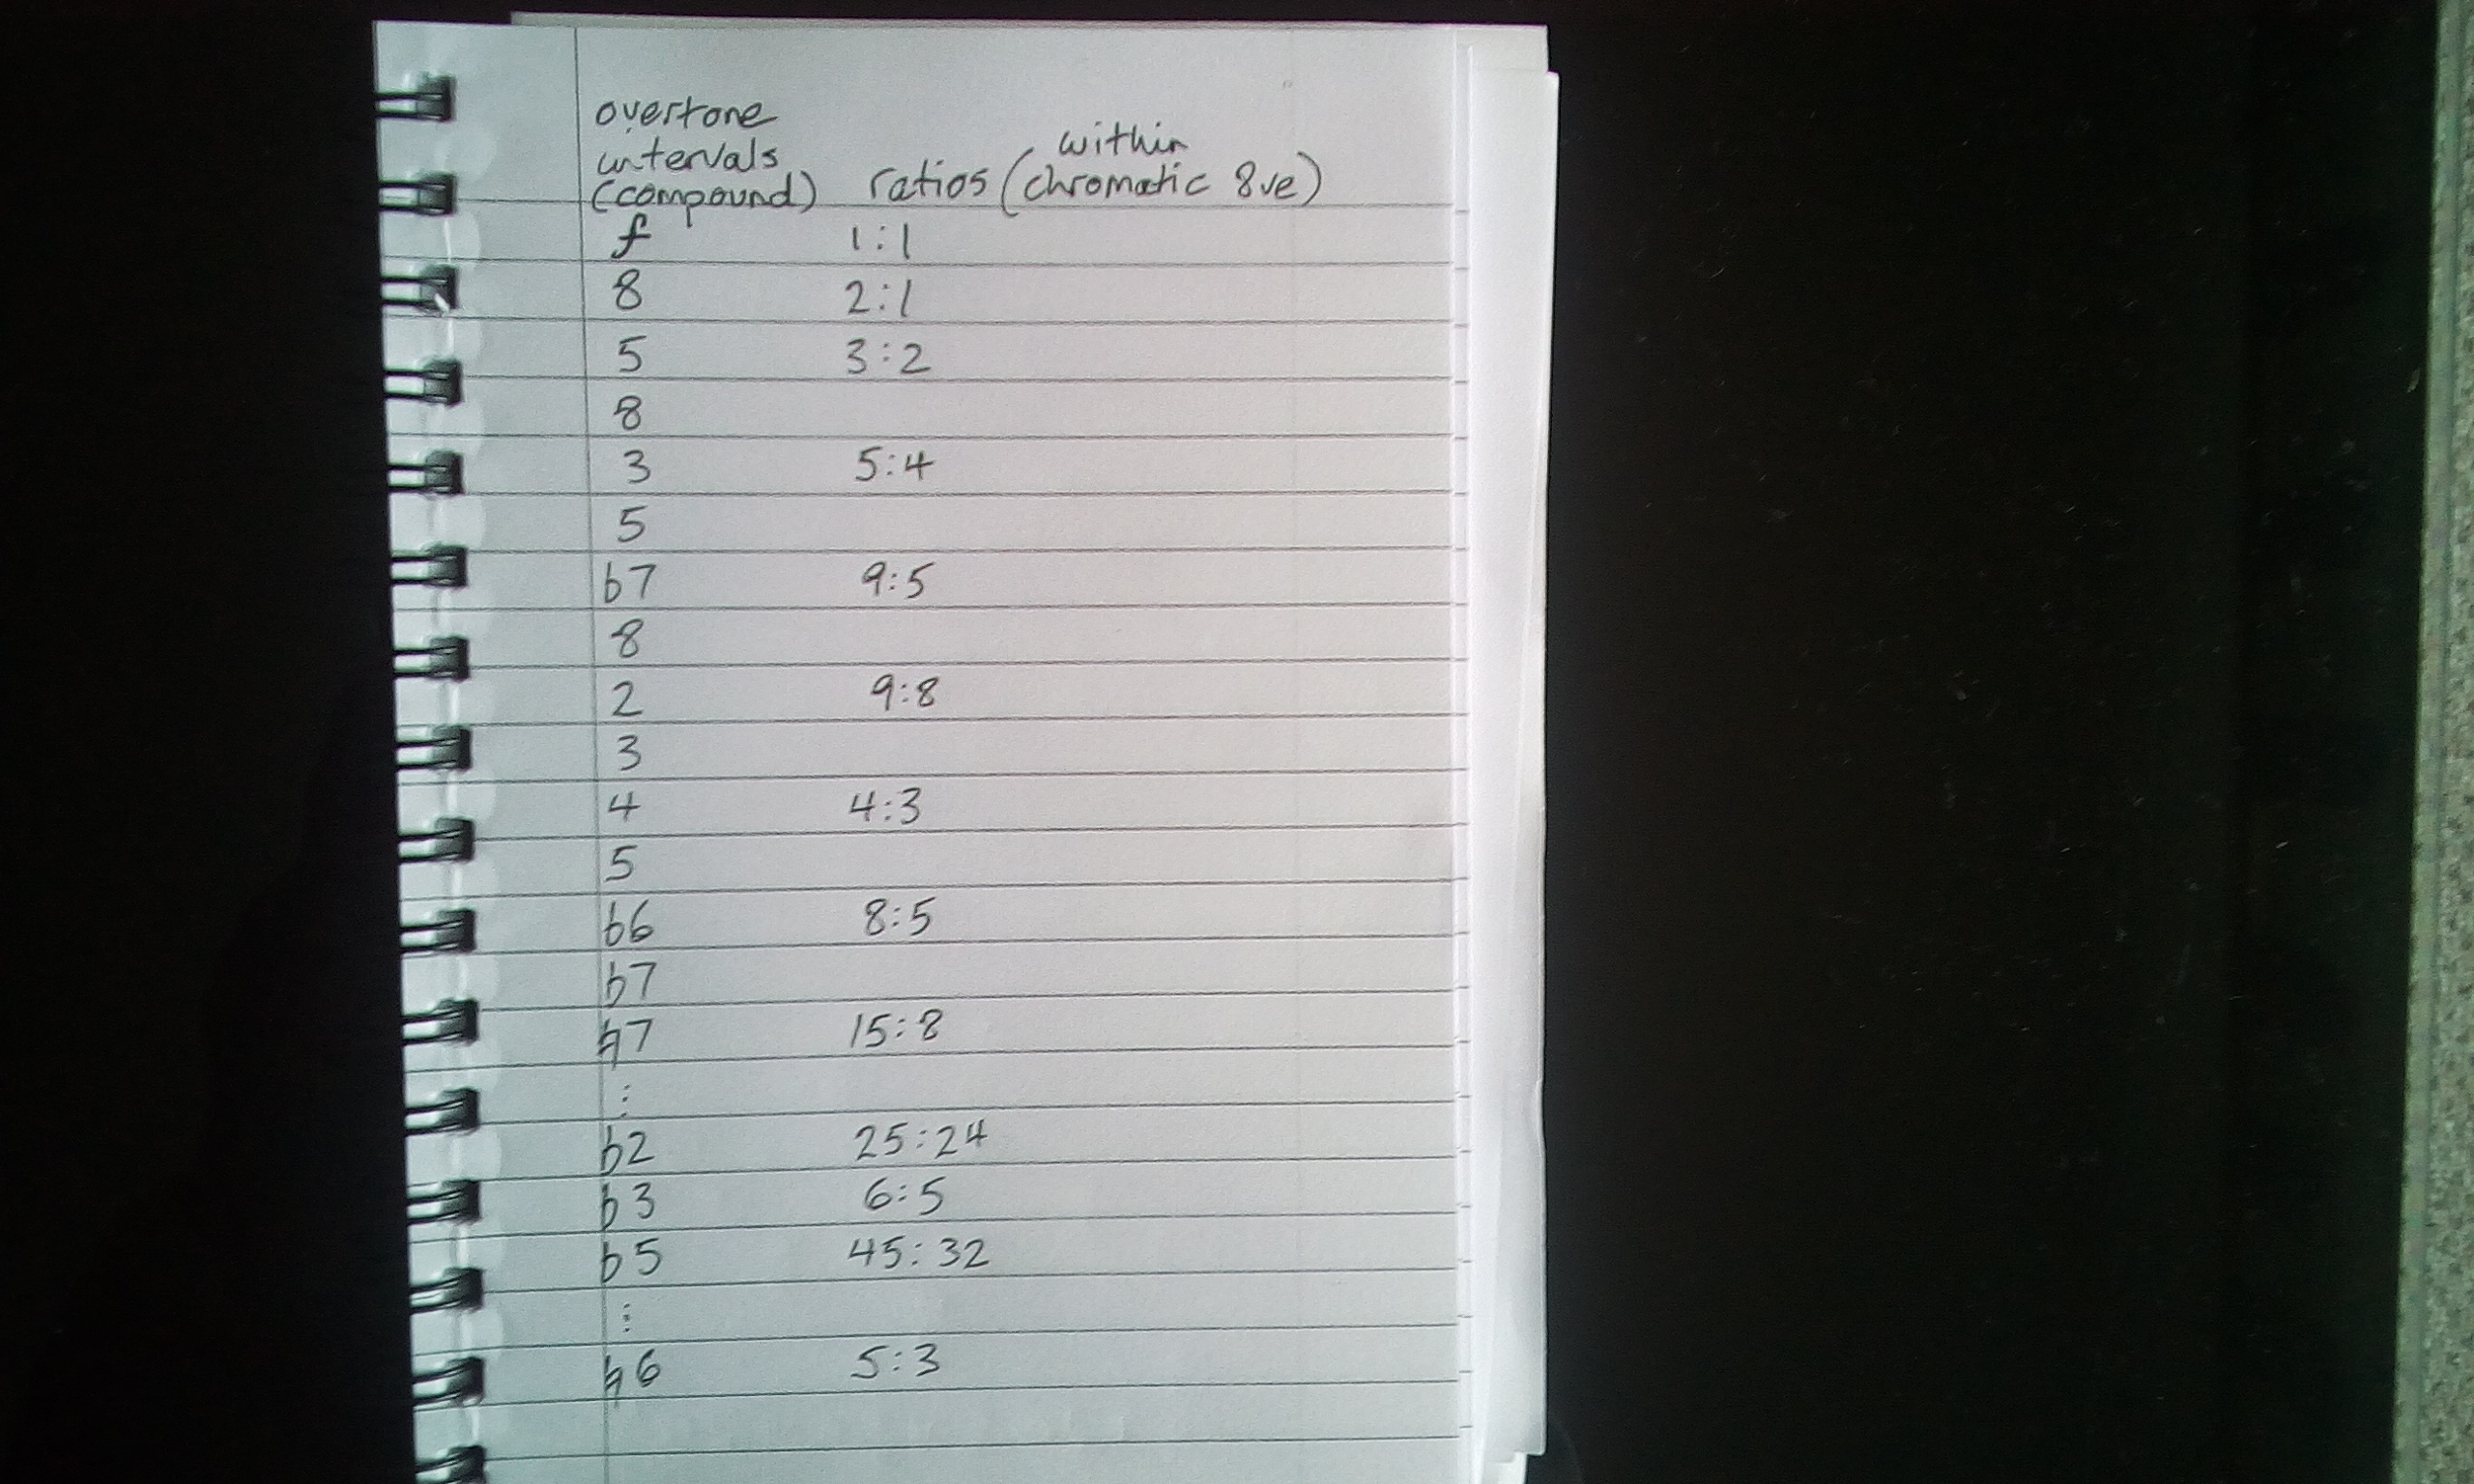 overtone
intervals within
(compound) ratios (chromatic 8ve)
f 1:1
8 2:1
5 3:2
8
3 5:4
5
b7 9:5
8
2 9:8
3
4 4:3
5
b6 8:5
b7
♮7 15:8
⋮
b2 25:24
b3 6:5
b5 45:32
⋮
♮6 5:3